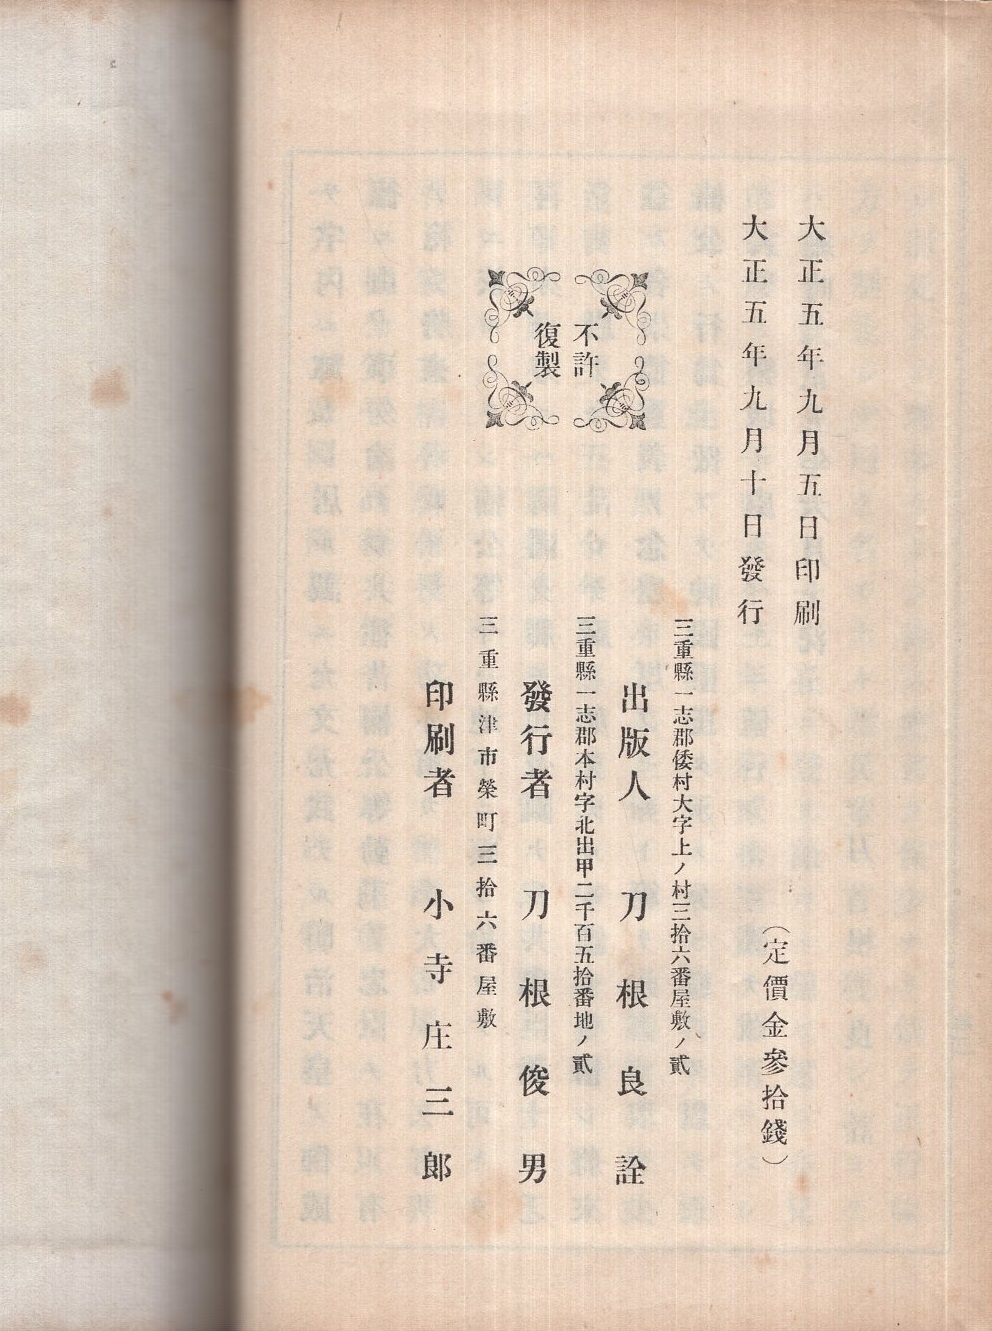 大正五年九月五日印刷
大正五年九月十日發行
（定價金參拾錢）
不許
復製
三重縣一志郡倭村大字上ノ村三拾六番屋敷ノ貳
出版人 刀根良詮
三重縣一志郡本村字北出甲二千百五拾番地ノ貳
發行者 刀根俊男
三重縣津市榮町三拾六番屋敷
印刷者 小寺庄三郎